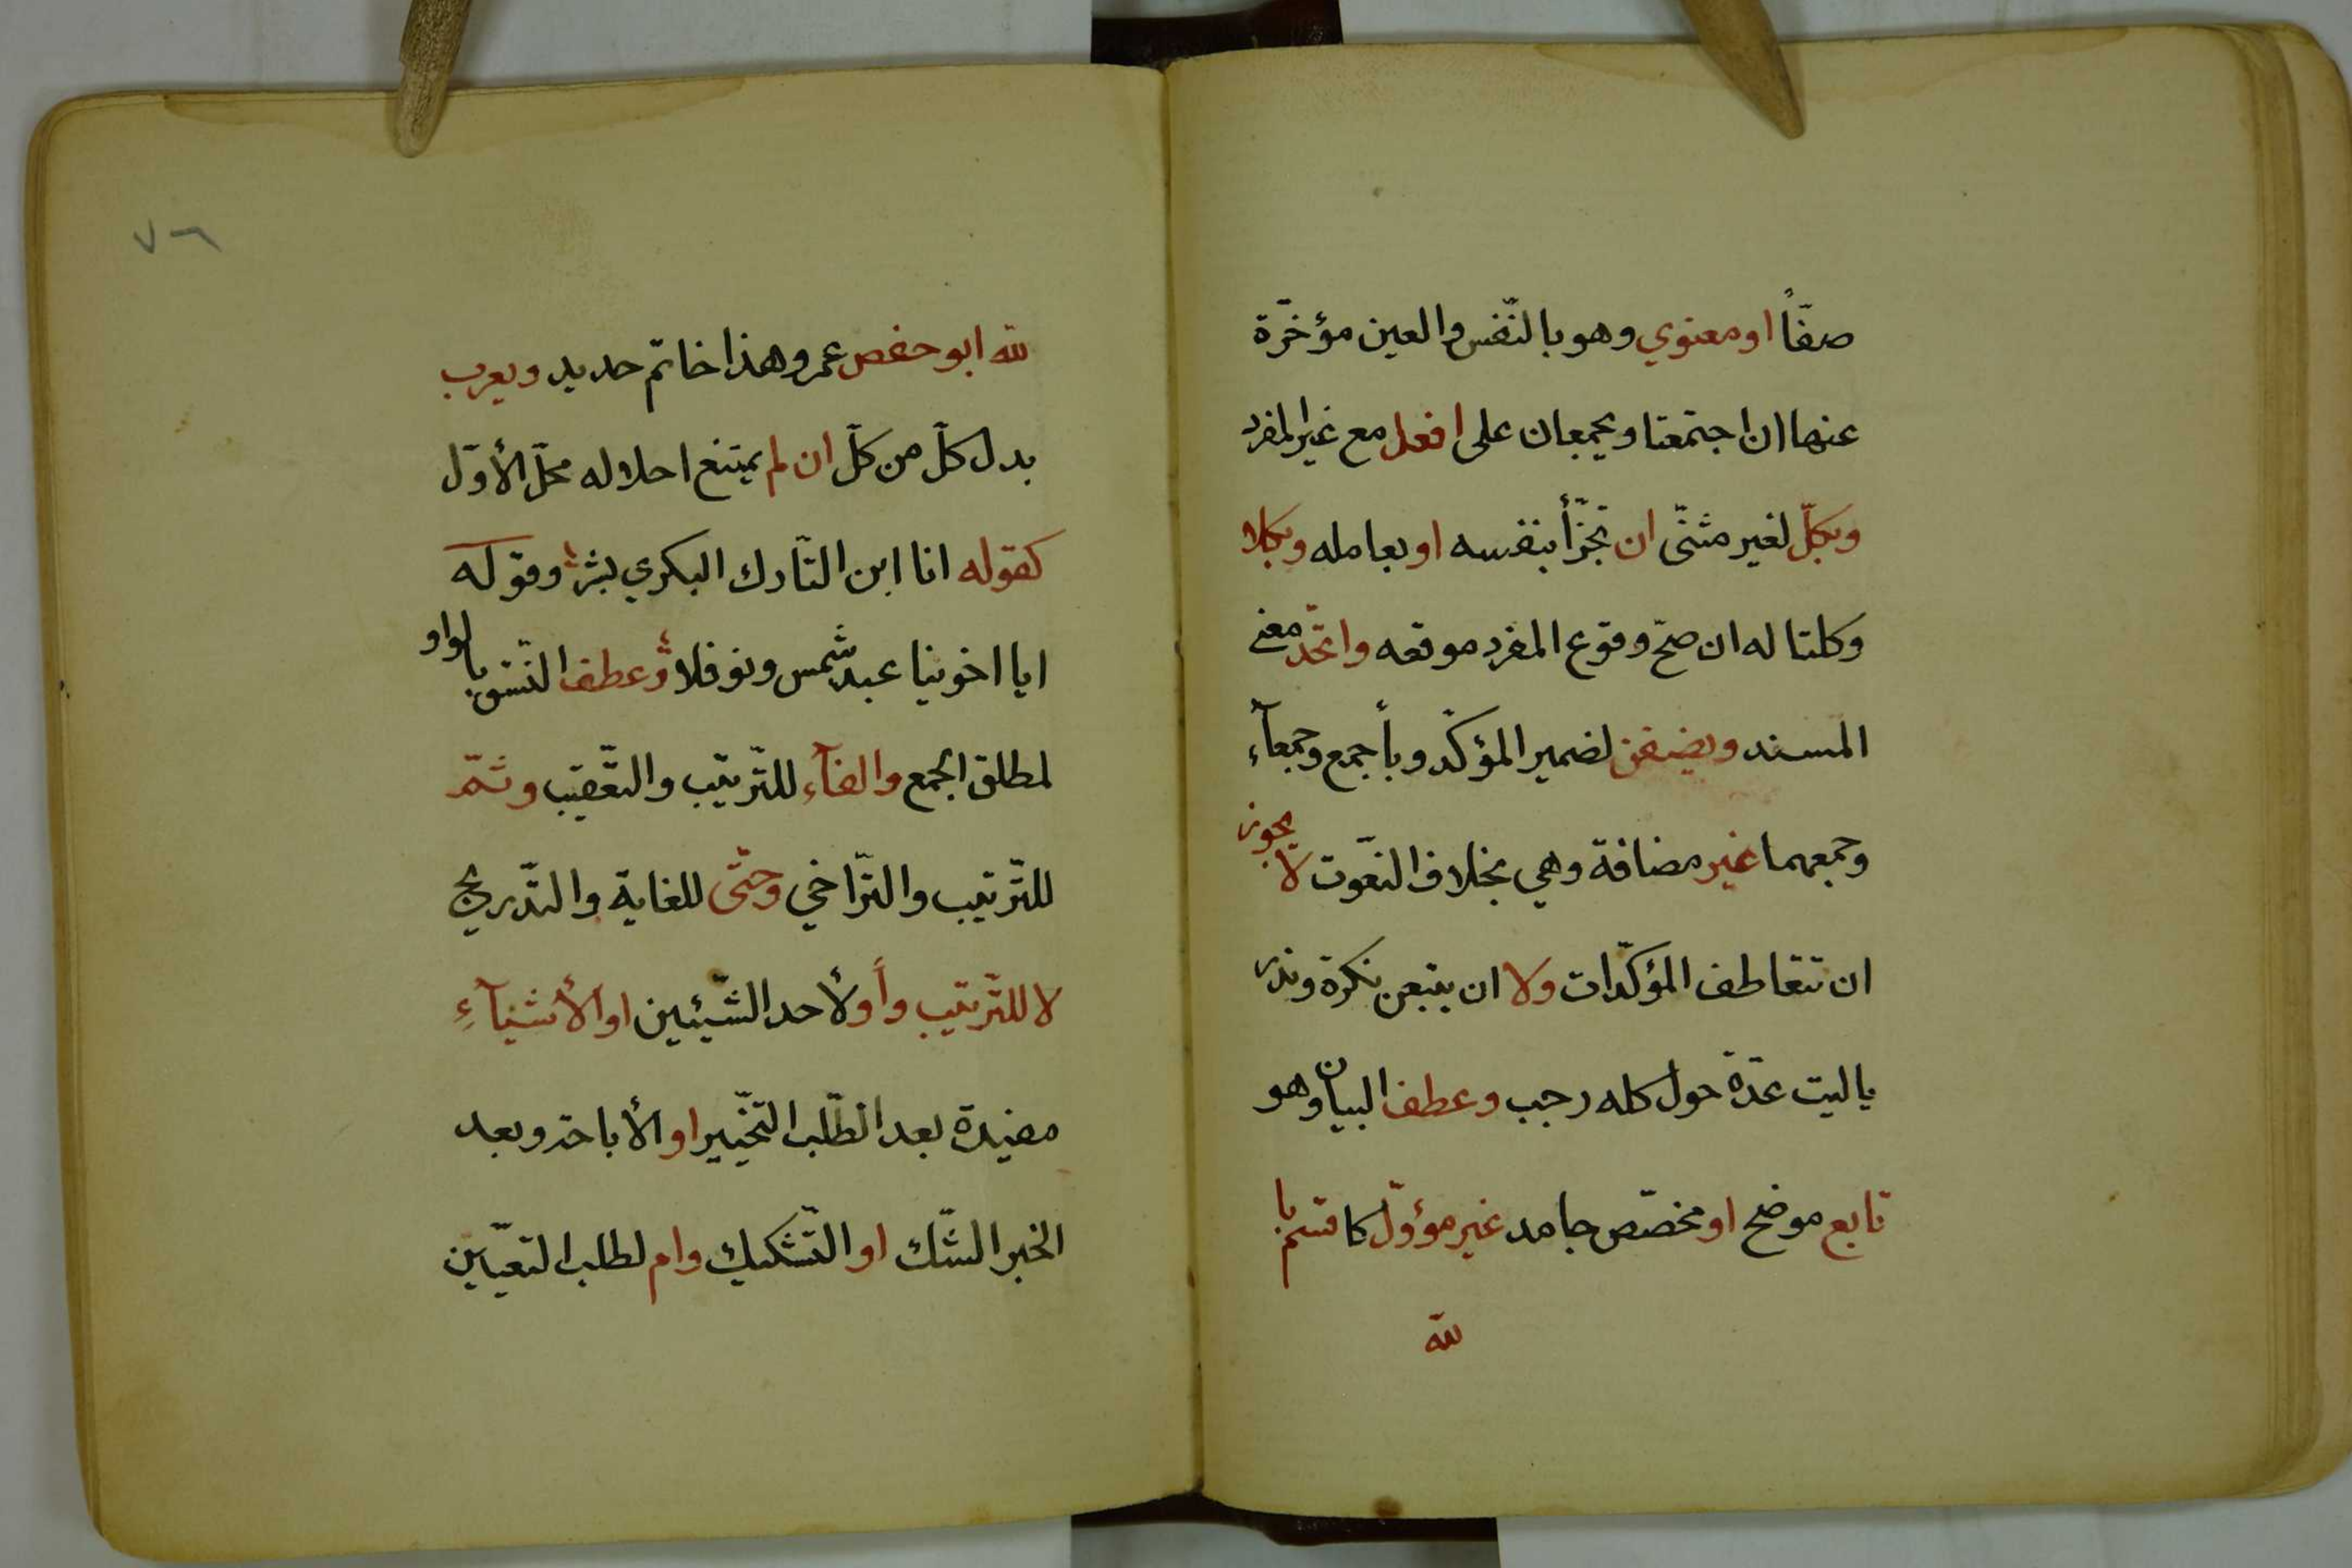 صفّاً او معنوي وهو بالنّفس والعين مؤخرّة
عنها ان اجتمعتا ويجمعان على افعل مع غير المفرد
وبكلّ لغير مثنّى ان تجزّأ بنفسه او بعامله وبكلا
وكلتا له ان صحّ وقوع المفرد موقعه واتّحد معنى
المسند ويضفن لضمير المؤكّد وبأجمع وجمعآء
وجمعهما غير مضافة وهي بخلاف النعّوت لا يجوز
ان تتعاطف المؤكدّات ولا ان يتبعن نكرة وندر
ياليت عدّة حول كله رجب وعطف البيان وهو
تابع موضح او مخصّص جامد غير مؤوّل كاقسم با
لله
لله ابو حفص عمر وهذا خاتم حديد ويعرب
بدل كلّ من كلّ ان لم يمتنع احلاله محلّ الأوّل
كقوله انا ابن التّارك البكري بشر وقوله
ايا اخوينا عبد شمس ونوفلا وعطف النّسق بالواو
لمطلق الجمع والفآء للترّتيب والتعّقيب وثمّ
للترّتيب والترّاخي وحتّى للغاية والتدّريج
لا للترّتيب وأو لأحد الشّيئين او الأشيآءِ
مفيدة بعد الطّلب التخّيير او الأباحة وبعد
الخبر الشّك او التشّكيك وام لطلب التعيّين
٧٦